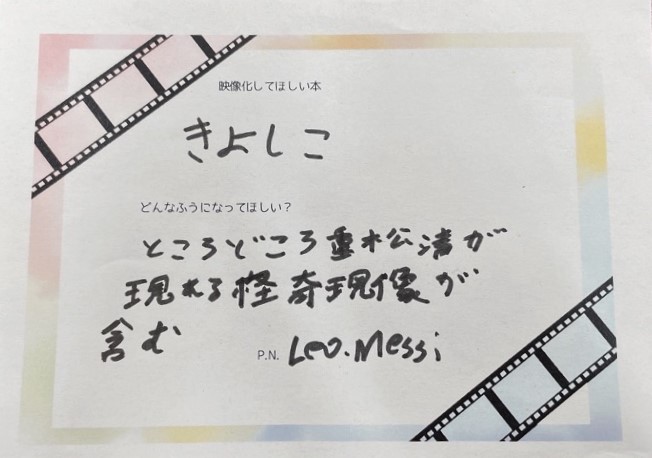 映像化してほしい本
きよしこ
どんなふうになってほしい?
ところどころ重松清が
現れる怪奇現像が
含む
P.N. Leo.Messi